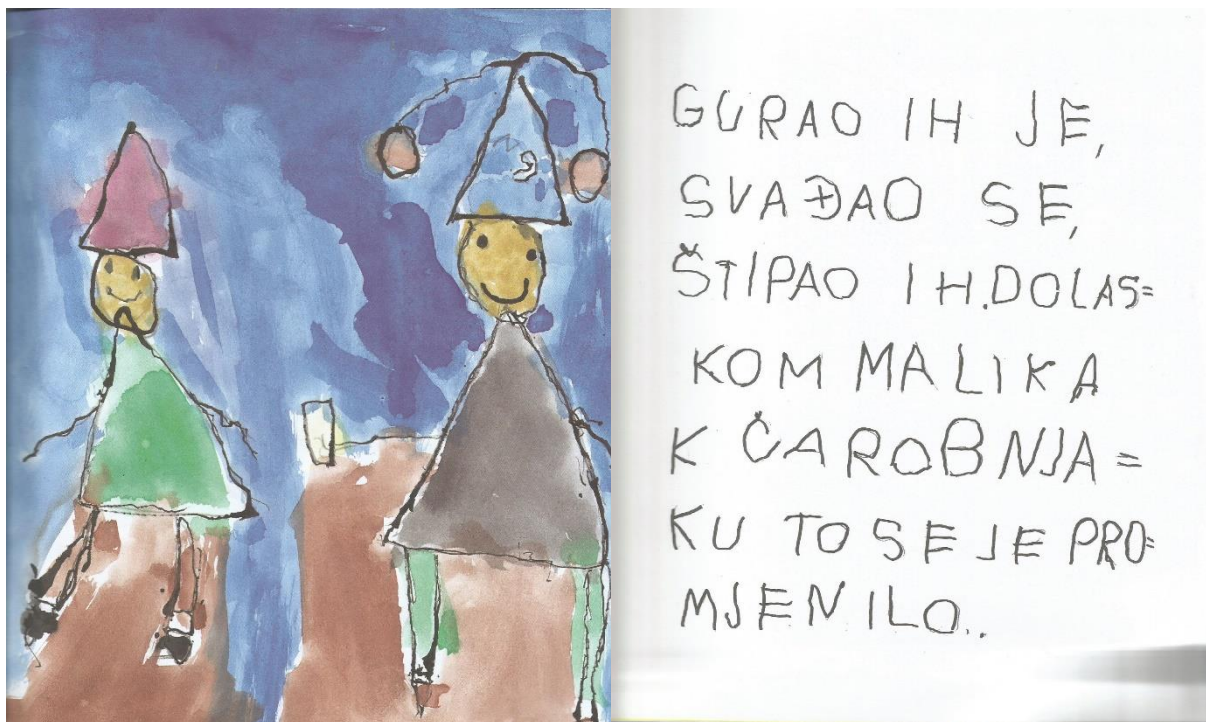 GURAO IH JE,
SVAĐAO SE,
ŠTIPAO IH.DOLAS=
KOM MALIKA
K ČAROBNJA=
KU TO SE JE PRO=
MJENILO..